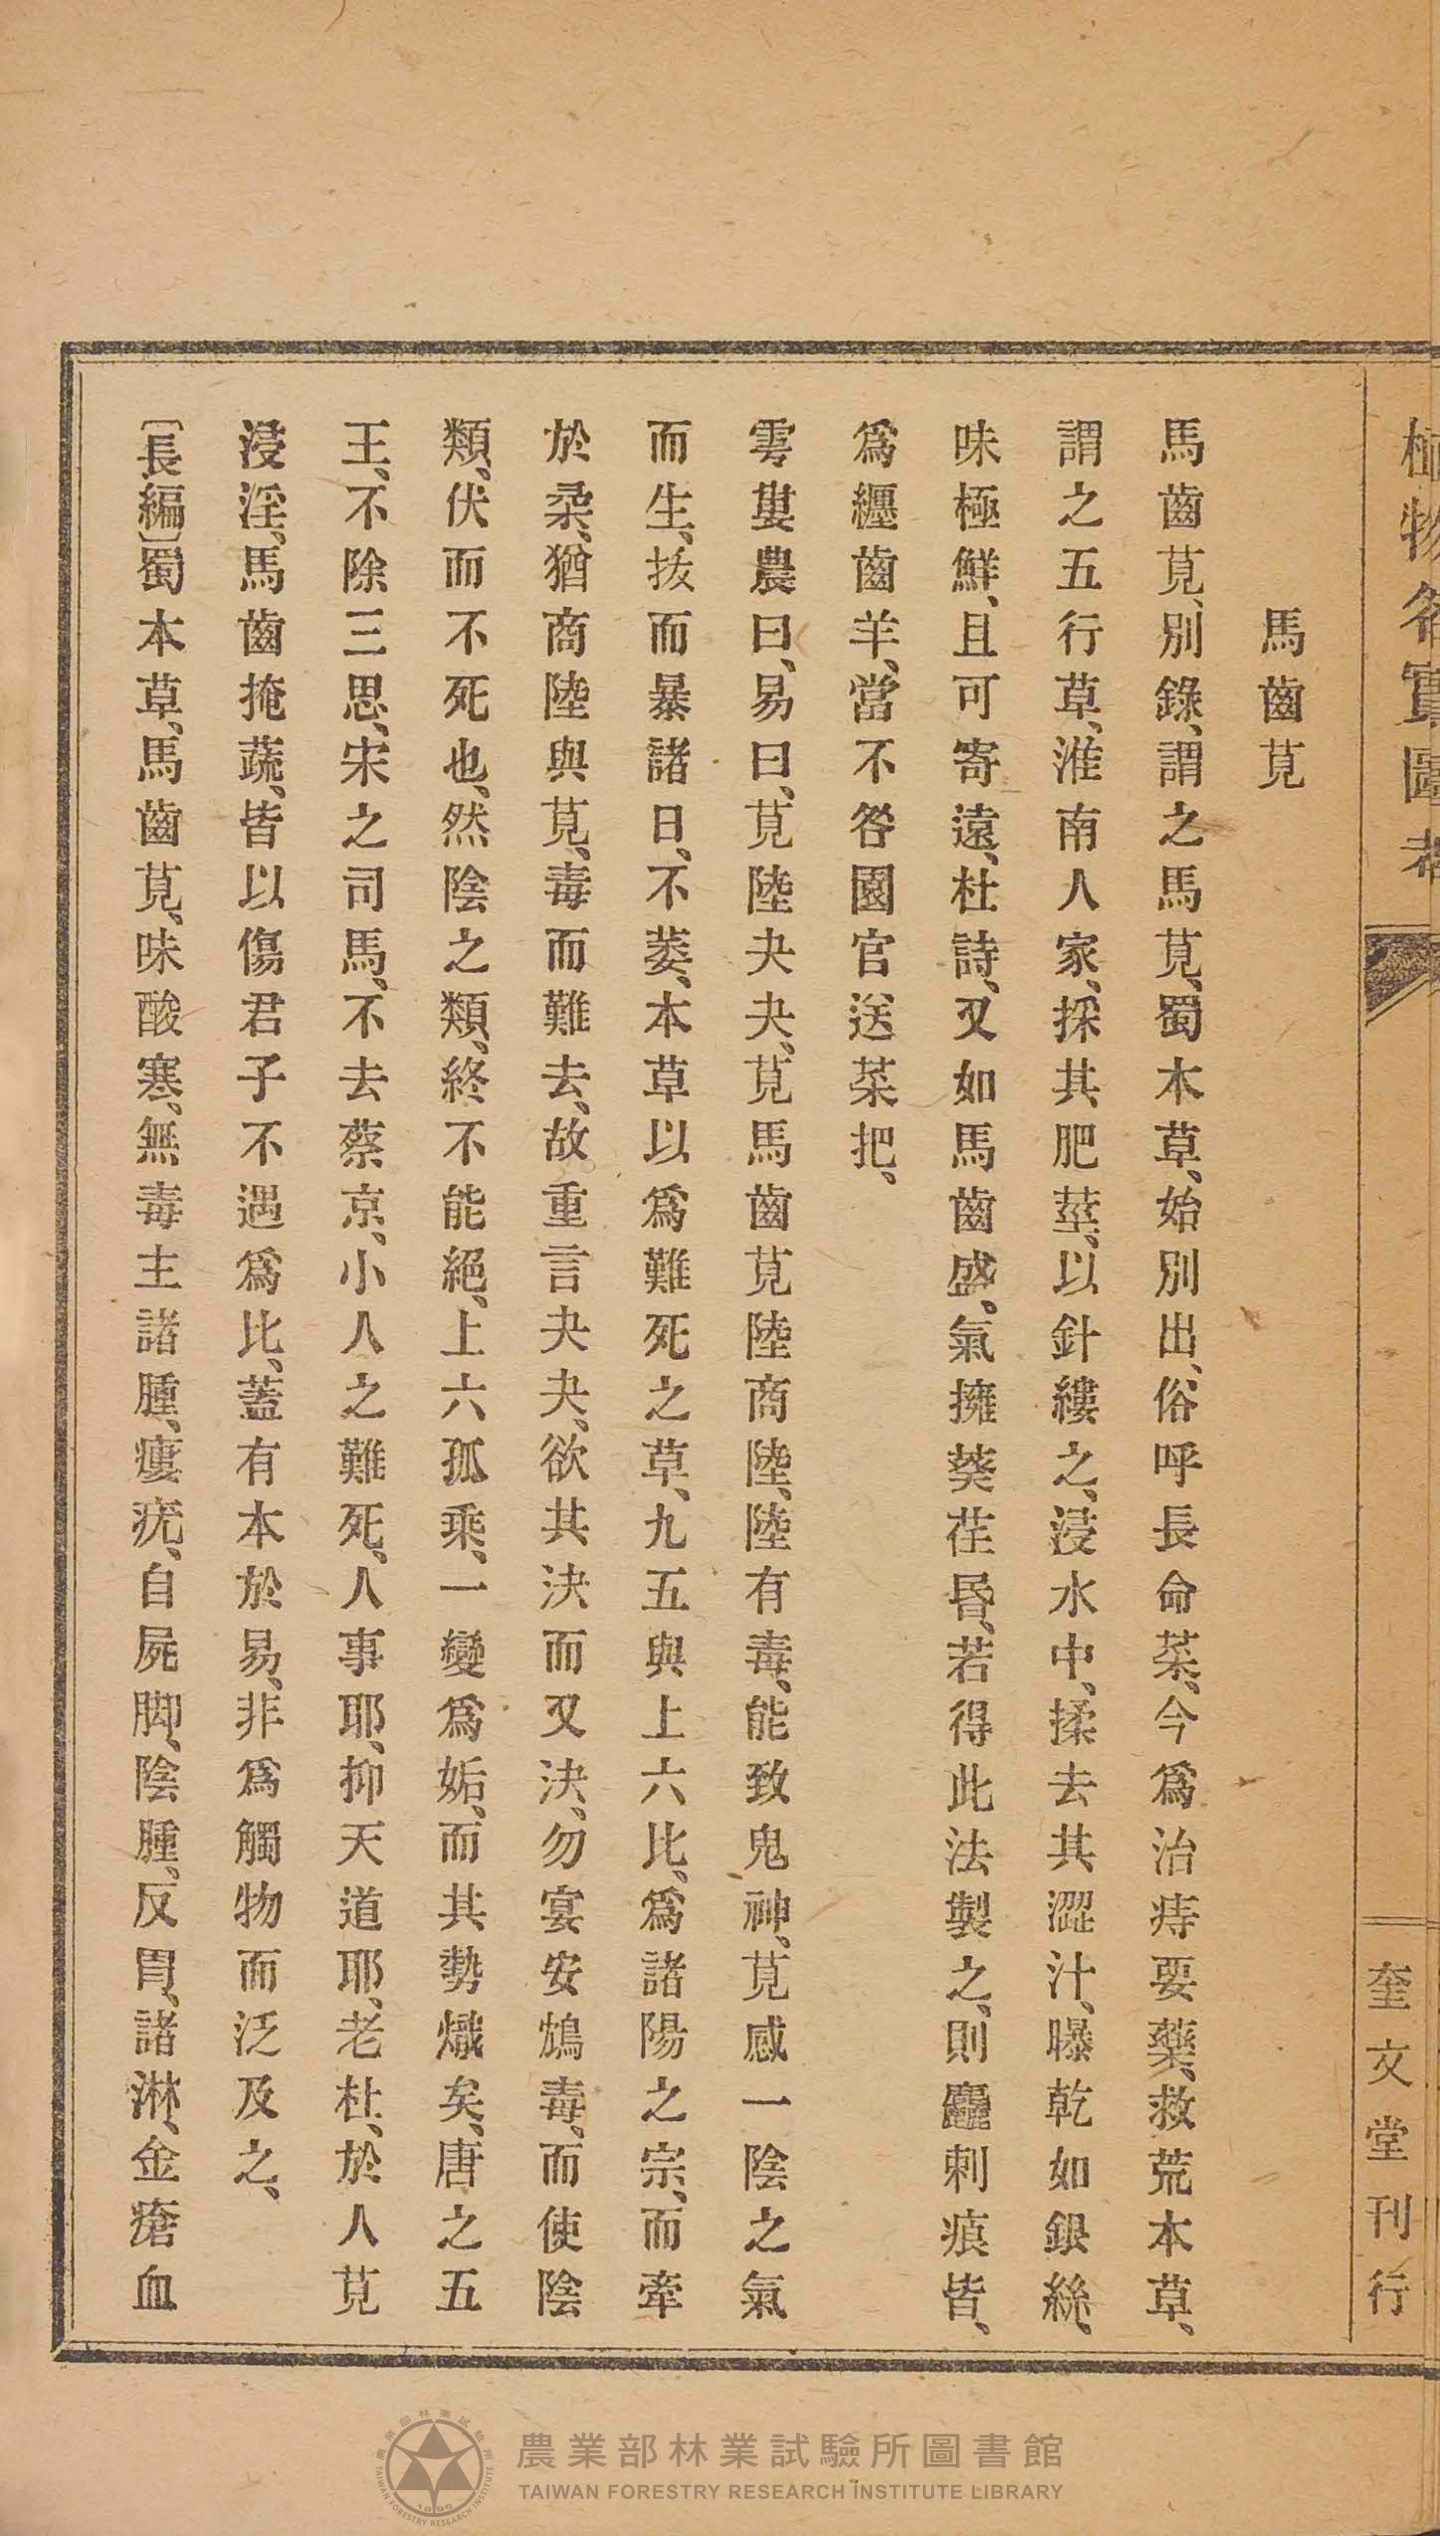 植物名實圖考
奎文堂刊行
馬齒莧
馬齒莧、別錄、謂之馬莧、蜀本草、始別出、俗呼長命菜、今爲治痔要藥、救荒本草、
謂之五行草、淮南人家、採其肥莖、以針縷之、浸水中、揉去其澀汁、曝乾如銀絲、
味極鮮、且可寄遠、杜詩、又如馬齒盛、氣擁葵荏昏、若得此法製之、則麤刺痕皆、
爲纒齒羊、當不咎園官送菜把、
雩婁農曰、易曰、莧陸夬夬、莧馬齒莧陸商陸、陸有毒、能致鬼神、莧感一陰之氣
而生、拔而暴諸日、不萎、本草以爲難死之草、九五與上六比、爲諸陽之宗、而牽
於柔、猶商陸與莧、毒而難去、故重言夬夬、欲其決而又決、勿宴安鴆毒、而使陰
類、伏而不死也、然陰之類、終不能絕、上六孤乘、一變爲姤、而其勢熾矣、唐之五
王、不除三思、宋之司馬、不去蔡京、小人之難死、人事耶、抑天道耶、老杜、於人莧
浸淫、馬齒掩蔬、皆以傷君子不遇爲比、蓋有本於易、非爲觸物而泛及之、
〔長編〕蜀本草、馬齒莧、味酸寒、無毒主諸腫、瘻疣、自屍脚、陰腫、反胃、諸淋、金瘡血
農業部林業試驗所圖書館
TAIWAN FORESTRY RESEARCH INSTITUTE LIBRARY
農業部林業試驗所
TAIWAN FORESTRY RESEARCH INSTITUTE
1895